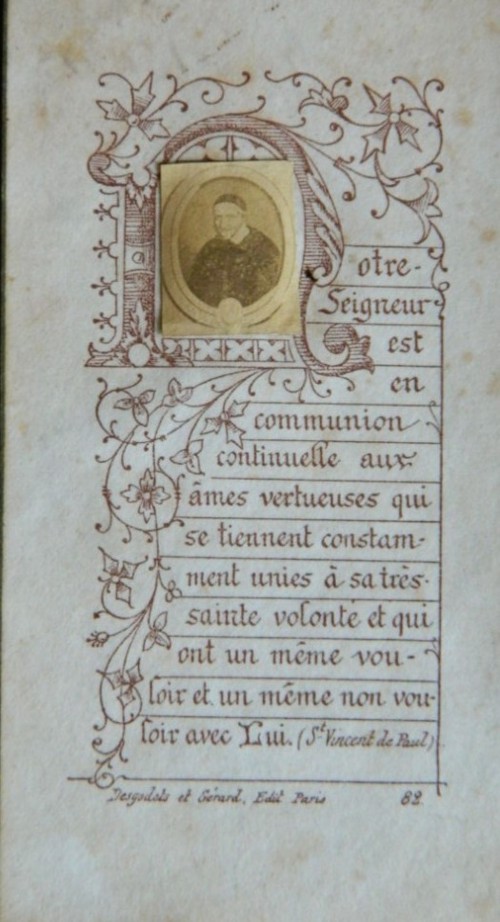 Notre-
Seigneur
est
en
communion
continuelle aux
âmes vertueuses qui
se tiennent constam-
ment unies à sa très-
sainte volonté et qui
ont un même vou-
loir et un même non vou-
loir avec Lui. (St Vincent de Paul)
Desgodets et Gérard, Edit Paris 82